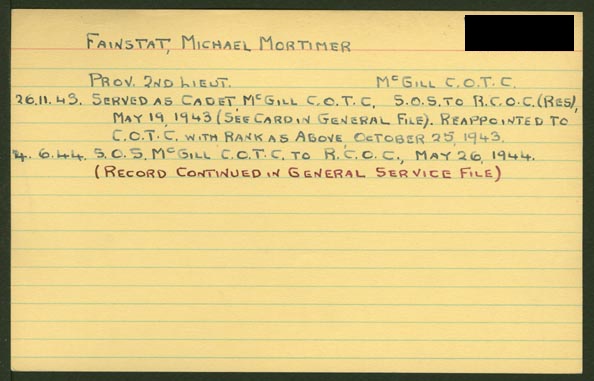 FAINSTAT, MICHAEL MORTIMER
PROV. 2ND LIEUT. McGILL C.O.T.C.
26.11.43. SERVED AS CADET, McGILL C.O.T.C, S.O.S. TO R.C.O.C. (RES),
MAY 19, 1943 (SEE CARD IN GENERAL FILE). REAPPOINTED TO
C.O.T.C. WITH RANK AS ABOVE OCTOBER 25, 1943.
4. 6.44. S.O.S. McGILL C.O.T.C. TO R.C.O.C., MAY 26, 1944.
(RECORD CONTINUED IN GENERAL SERVICE FILE)